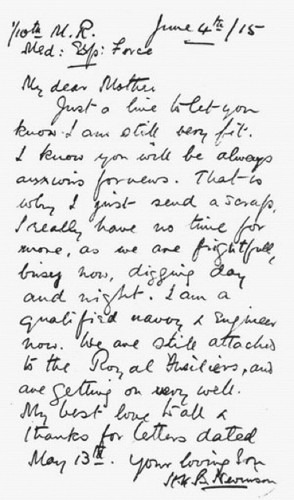 1/10th M.R. June 4th/15
Med: Exp: Force
My dear Mother
Just a line to let you
know I am still very fit.
I know you will be always
anxious for news. That is
why I just send a scrap,
I really have no time for
more, as we are frightfully
busy now, digging day
and night. I am a
qualified navvy & Engineer
now. We are still attached
to the Royal Fusiliers, and
are getting on very well.
My best love to all &
thanks for letters dated
May 13th. Your loving Son
B